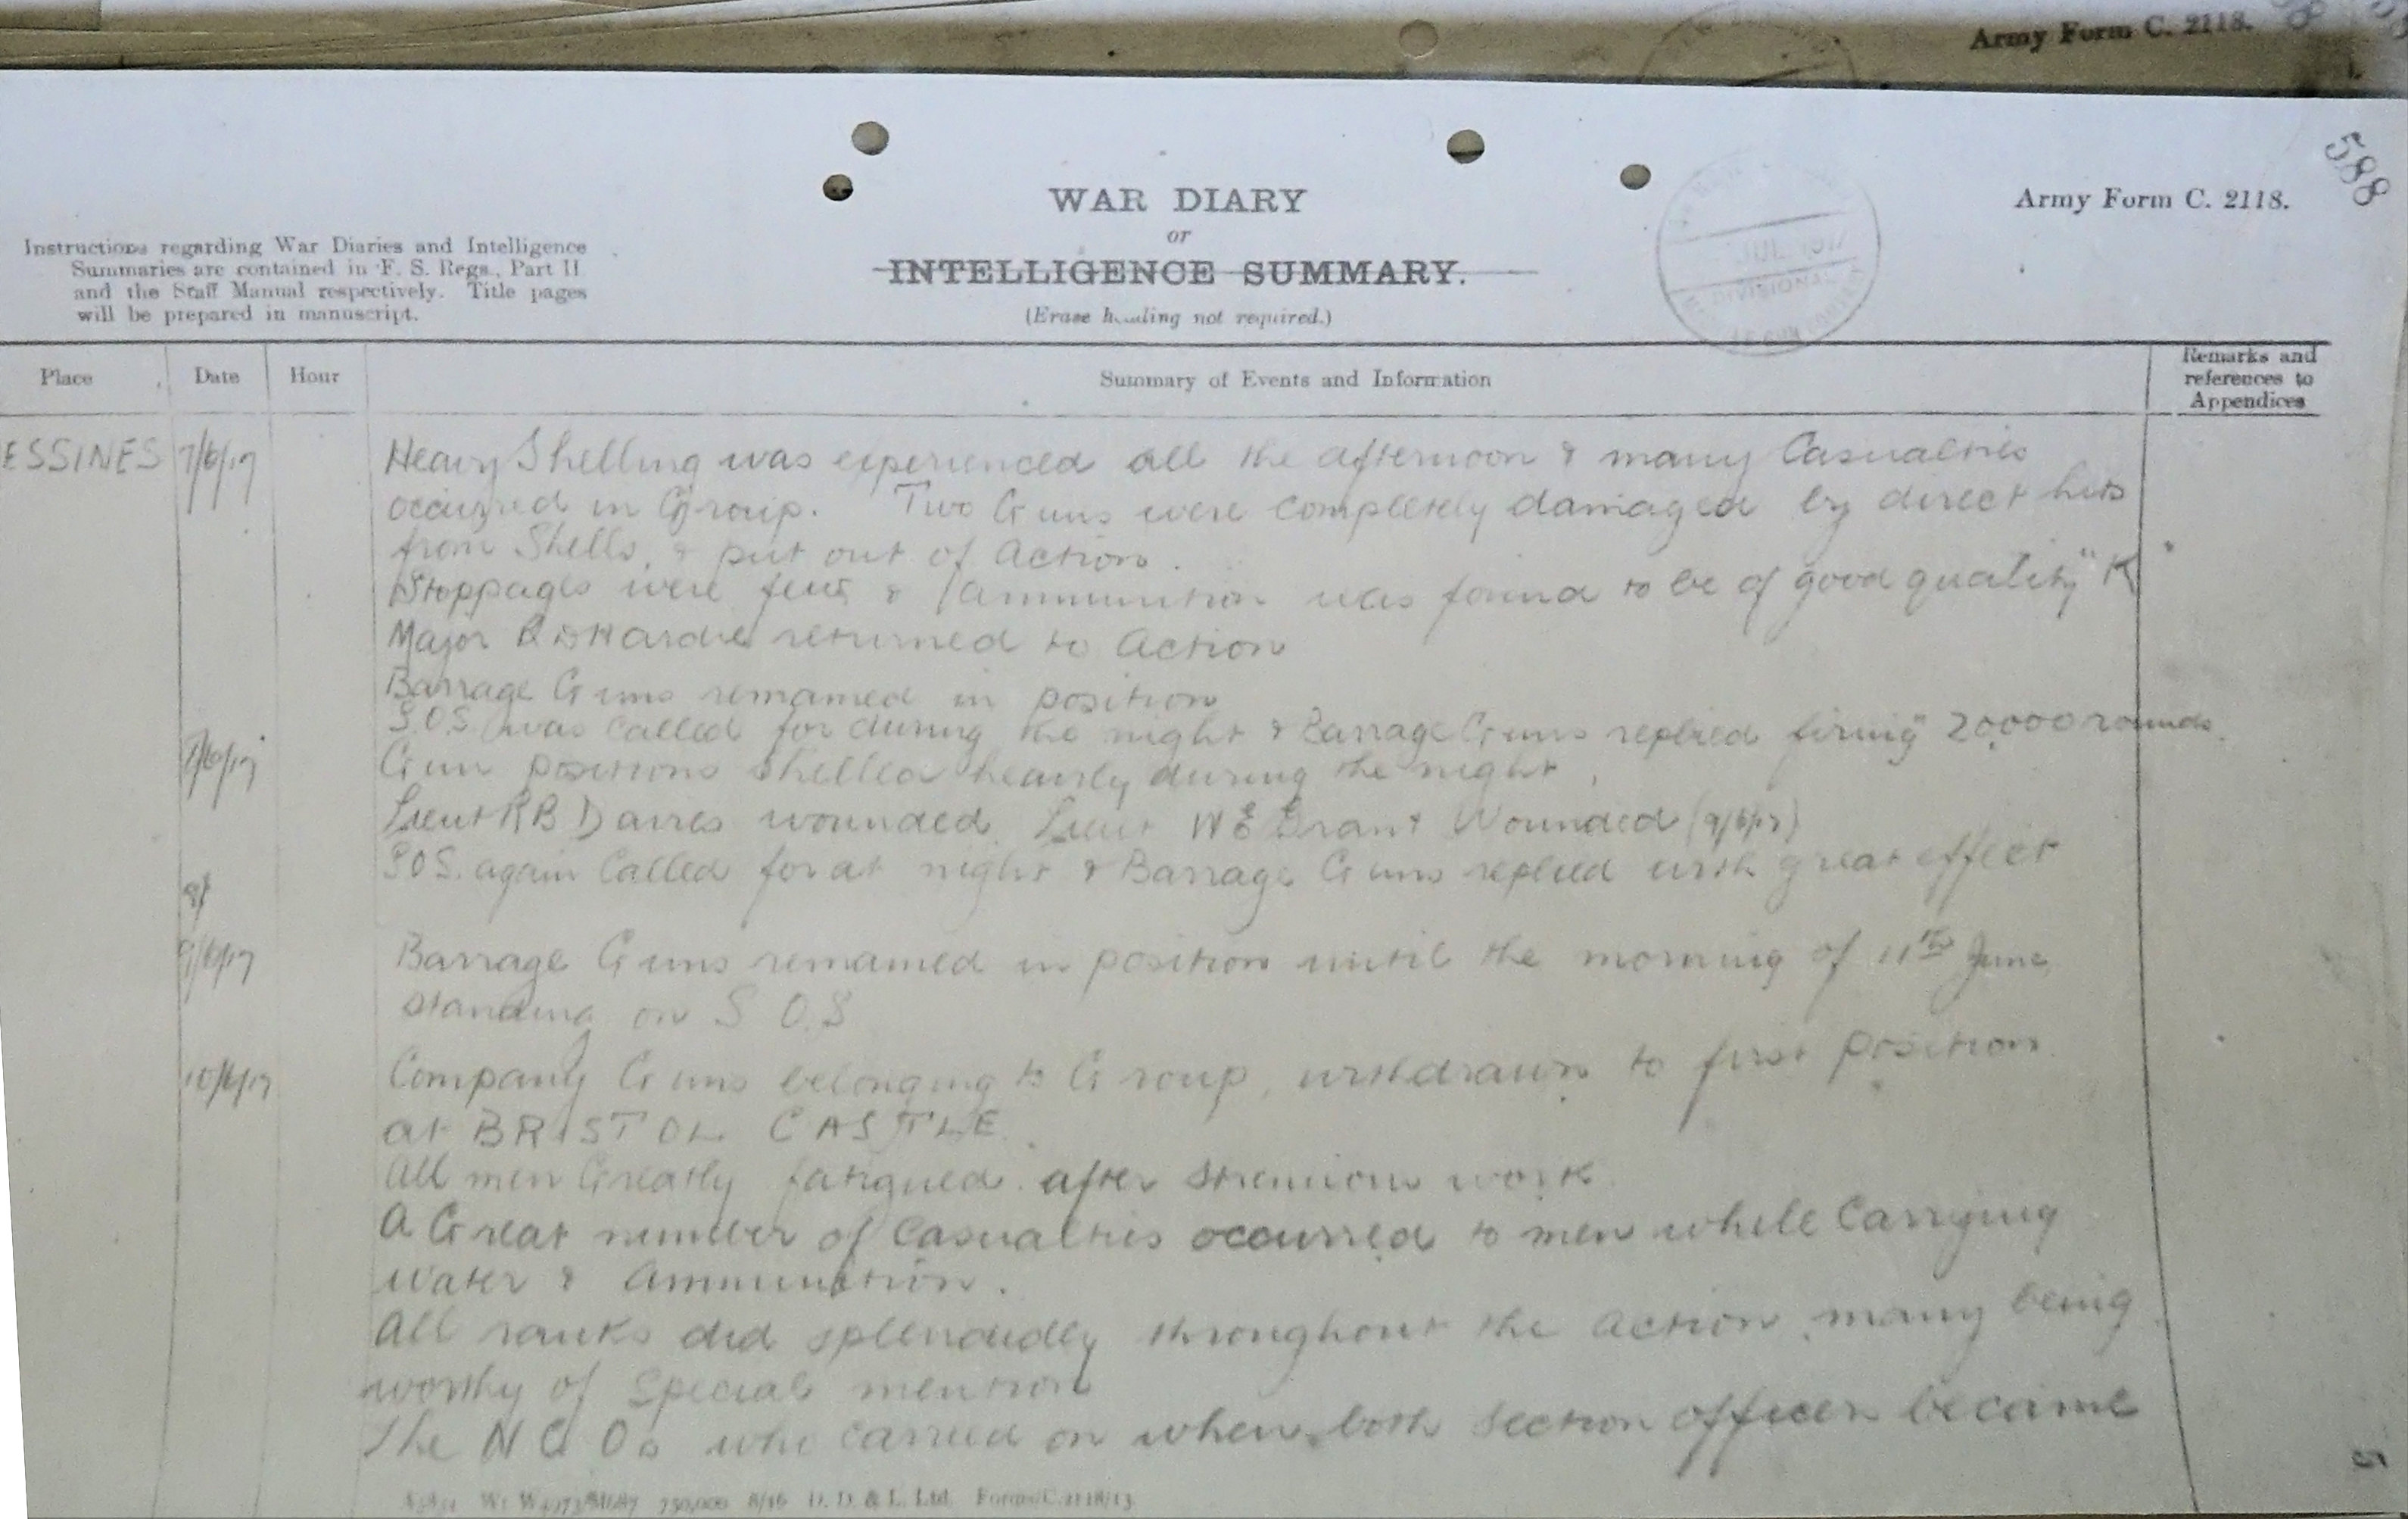 Army Form C. 2118.
588
WAR DIARY
or
INTELLIGENCE SUMMARY.
(Erase heading not required.)
Army Form C. 2118.
Instructions regarding War Diaries and Intelligence
Summaries are contained in F. S. Regs., Part II
and the Staff Manual respectively. Title pages
will be prepared in manuscript.
JUL 1917
DIVISIONAL
Place Date Hour Summary of Events and Information Remarks and references to Appendices
ESSINES 7/6/17 Heavy Shelling was experienced all the afternoon & many Casualties
occurred in Group. Two Guns were completely damaged by direct hits
from Shells, & put out of Action.
Stoppages were few & Ammunition was found to be of good quality "K"
Major returned to Action
Barrage Guns remained in position
S.O.S. was called for during the night & Barrage Guns replied firing 20,000 rounds.
Gun positions Shelled heavily during the night.
Lieut R B Davies wounded. Lieut W E Grant Wounded (9/6/17)
S O S. again Called for at night & Barrage Guns replied with great effect
9/6/17 Barrage Guns remained in position until the morning of 11th June
standing on S O.S
10/6/17 Company Guns belonging to Group, withdrawn to first position
at BRISTOL CASTLE.
All men Greatly fatigued after strenuous work
A Great number of Casualties occurred to men while Carrying
water & Ammunition.
All ranks did splendidly throughout the action, many being
worthy of Special mention
The N C Os who carried on when both Section officers became
750,000 8/16 D. D. & L. Ltd. Forms/C.2118/13
5